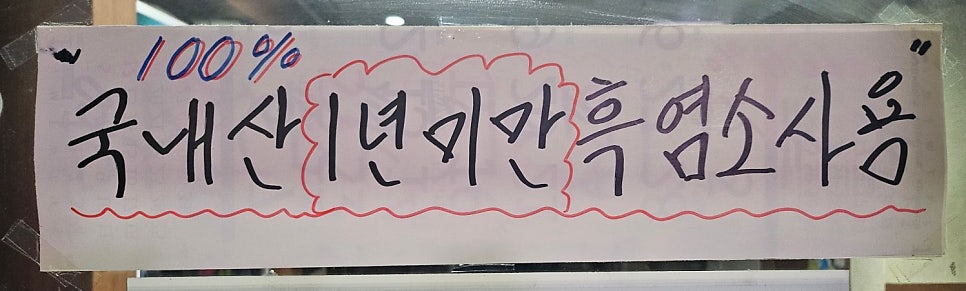 " 100%
국내산 1년미만 흑염소사용 "